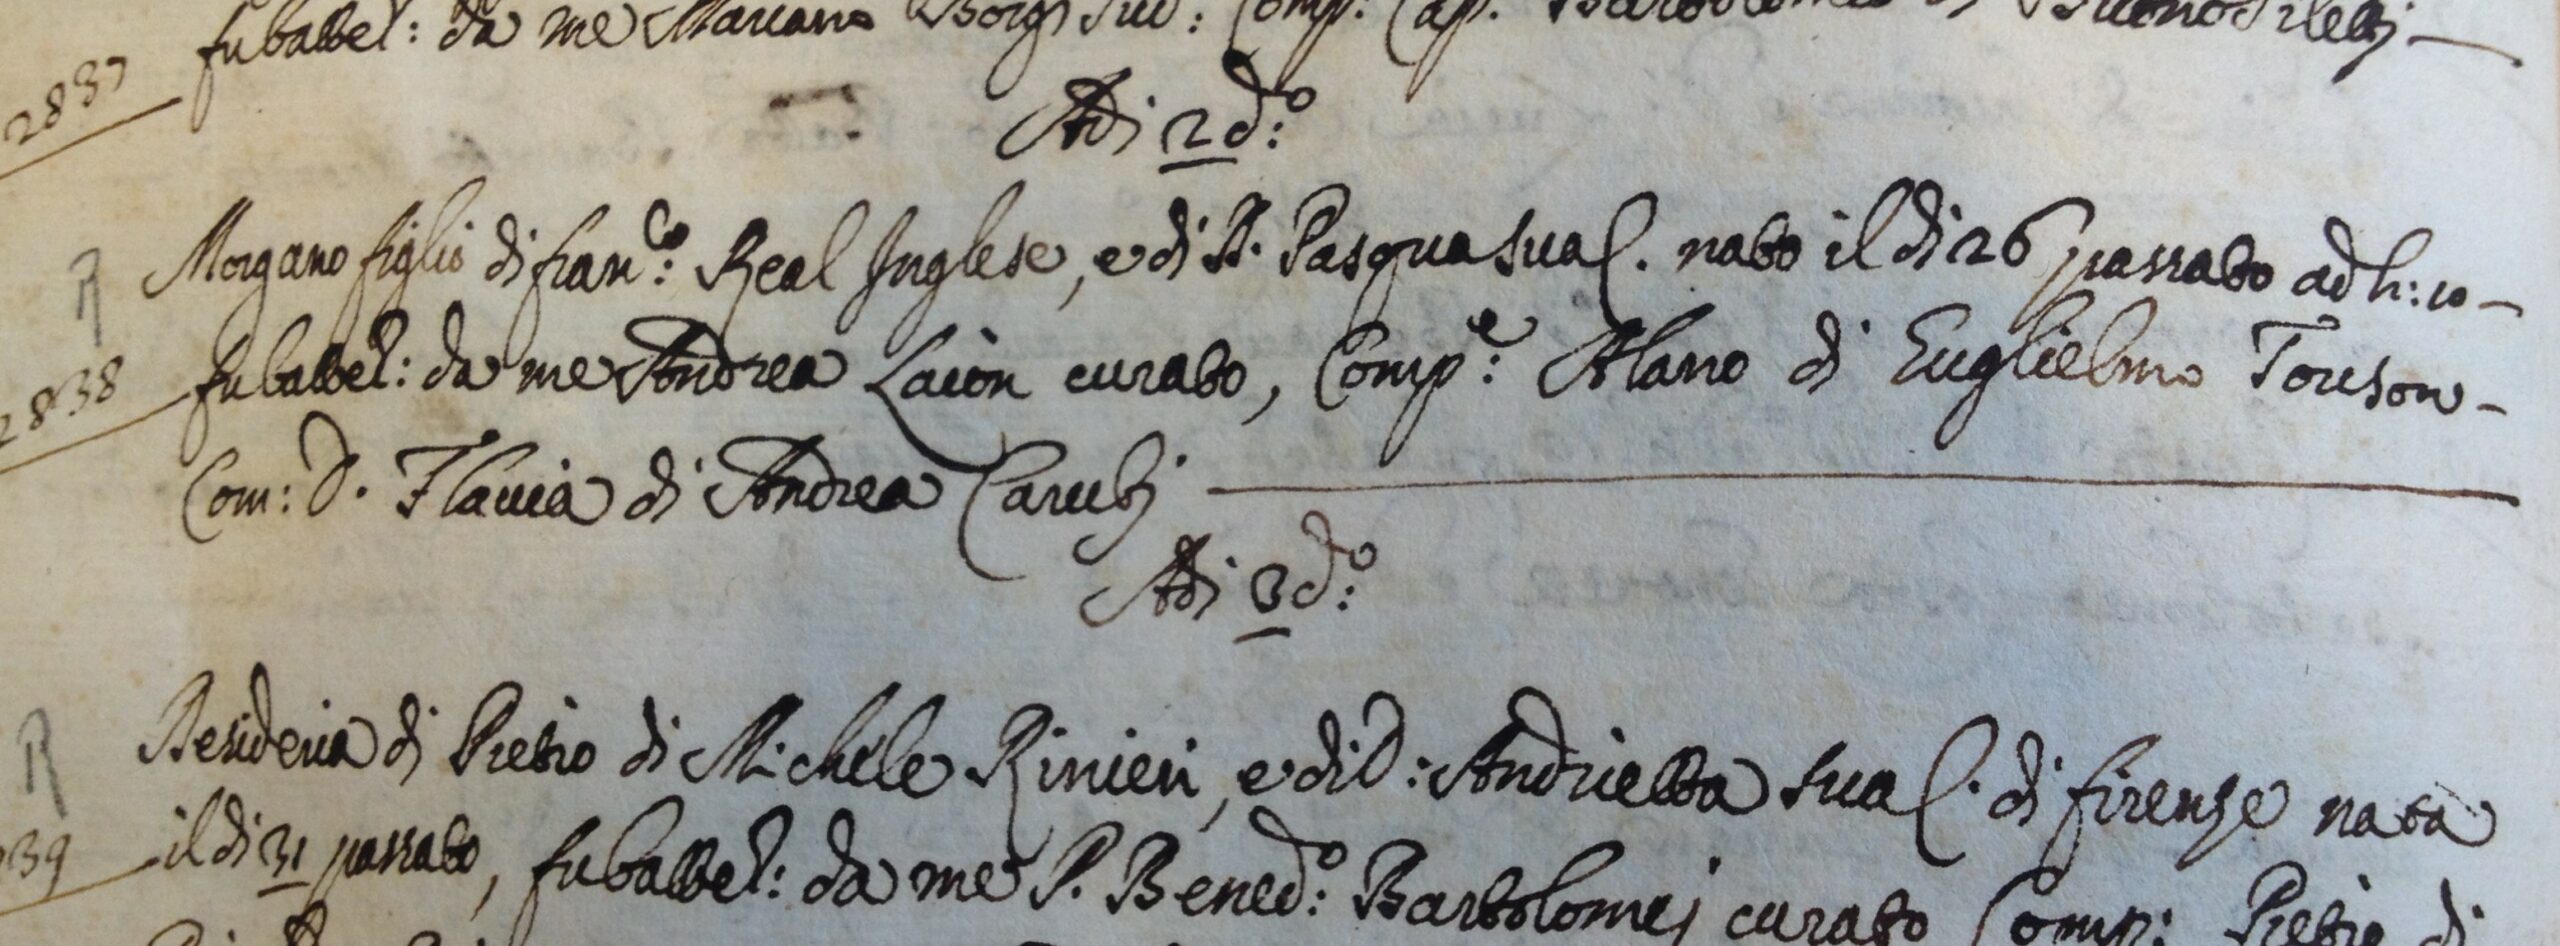 fu battet: da me Mariano Borgi Sud: Comp: Cap. Bartolomeo di
2837
Adi 2 d.º:
Morgano figlio di Fran.co: Real Inglese, e di D. Pasqua sua C. nato il di 26 passato ad h: 10 -
R
2838
fu battet: da me Andrea Laiòn curato, Comp.e: Alano di Guglielmo Touson -
Com: D. Flavia di Andrea Carubi
Adi 3 d.º:
R
Desideria di Pietro di Michele Rinieri, e di D: Andrietta sua C. di Firenze nata
39
il di 31 passato, fu battet: da me P. Bened.º: Bartolomej curato Comp: Pietro di